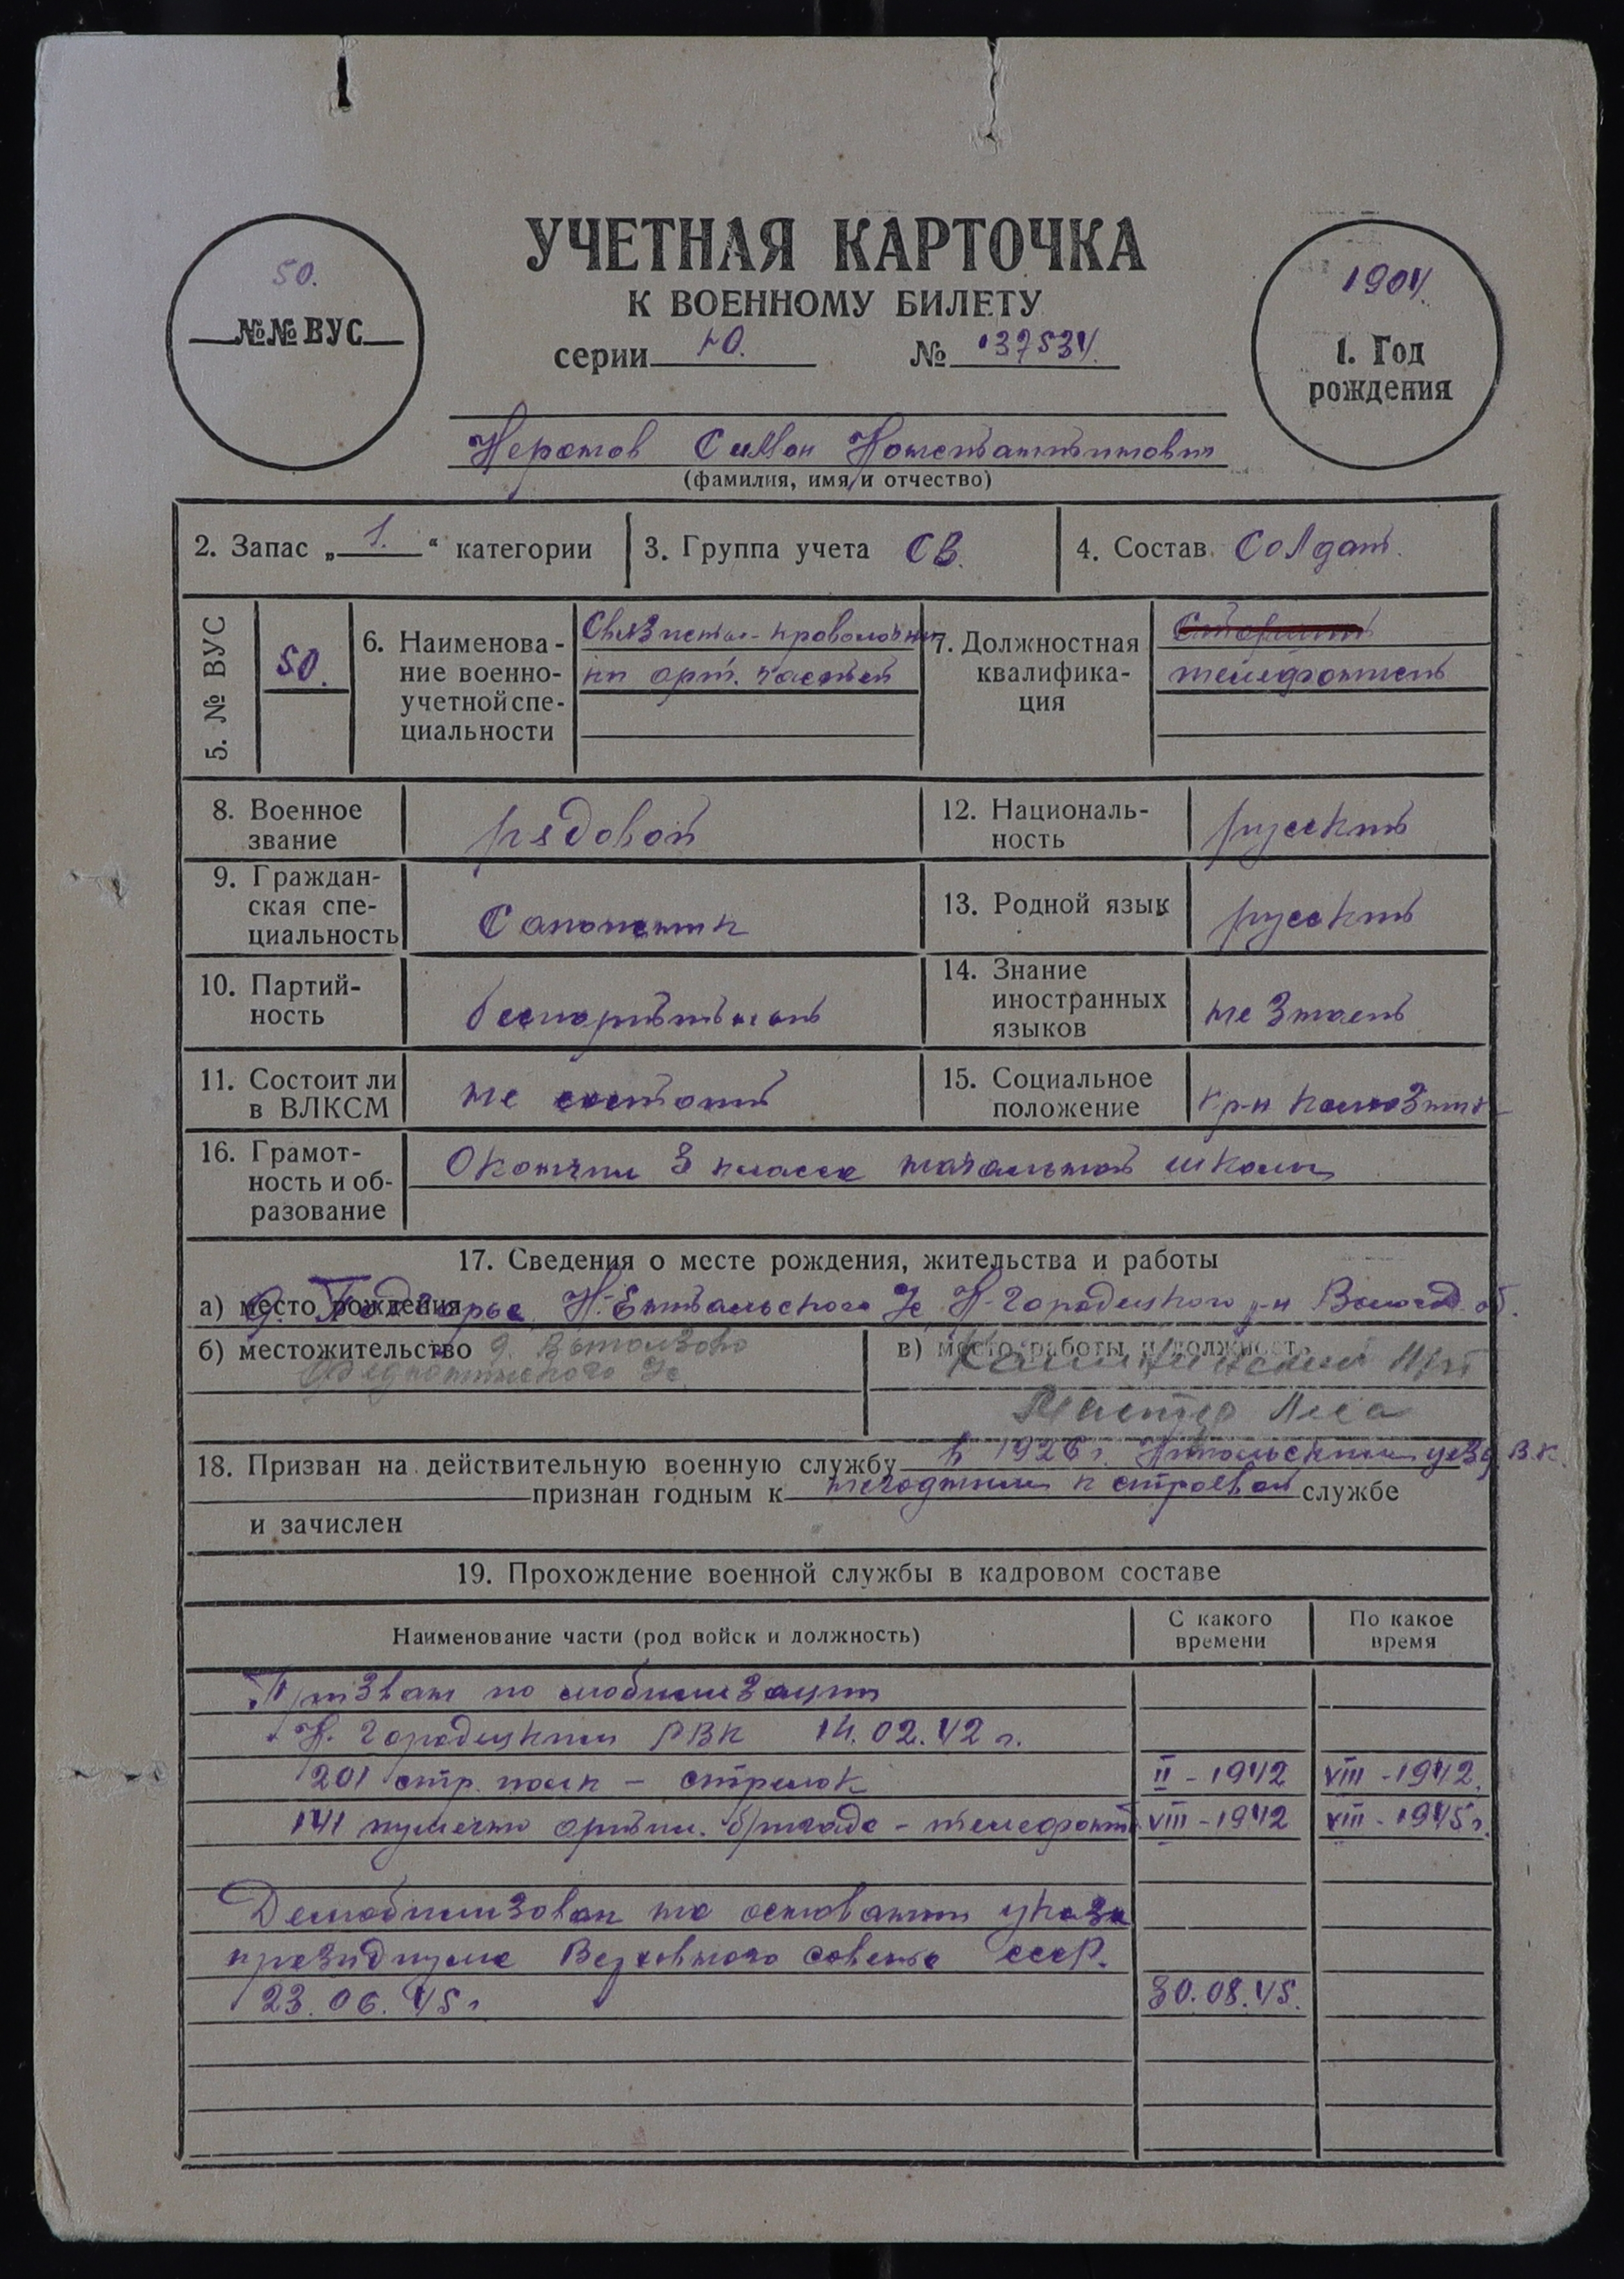 УЧЕТНАЯ КАРТОЧКА
К ВОЕННОМУ БИЛЕТУ
серии № 
50.
№№ ВУС
1904.
1. Год
рождения
Симон Константинович
(фамилия, имя и отчество)
2. Запас „ 1. “ категории
3. Группа учета СВ.
4. Состав Солдат.
5. № ВУС
50.
6. Наименова-
ние военно-
учетной спе-
циальности
арт. частей
7. Должностная
квалифика-
ция
телефонист
8. Военное
звание
рядовой
12. Националь-
ность
русский
9. Граждан-
ская спе-
циальность
Сапожник
13. Родной язык
русский
10. Партий-
ность
беспартийный
14. Знание
иностранных
языков
не знает
11. Состоит ли
в ВЛКСМ
не состоит
15. Социальное
положение
кр-н
16. Грамот-
ность и об-
разование
Окончил 3 класса начальной школы
17. Сведения о месте рождения, жительства и работы
а) место рождения д. Подгорье Н-Ентальского с/с К-Городецкого р-н Волог. об.
б) местожительство д.
в) место работы и должность
Мастер леса
18. Призван на действительную военную службу в 1926 г. Никольским уезд В.К.
признан годным к негодным к строевой службе
и зачислен
19. Прохождение военной службы в кадровом составе
Наименование части (род войск и должность)
С какого
времени
По какое
время
Призван по мобилизации
К. Городецким РВК 14.02.42 г.
201 стр. полк – стрелок II - 1942 VIII - 1942.
141 пушечно артил. бригада - телефонист VIII - 1942 VIII - 1945 г.
Демобилизован на основании указа
президиума Верховного совета СССР.
23.06.45 г 30.08.45.